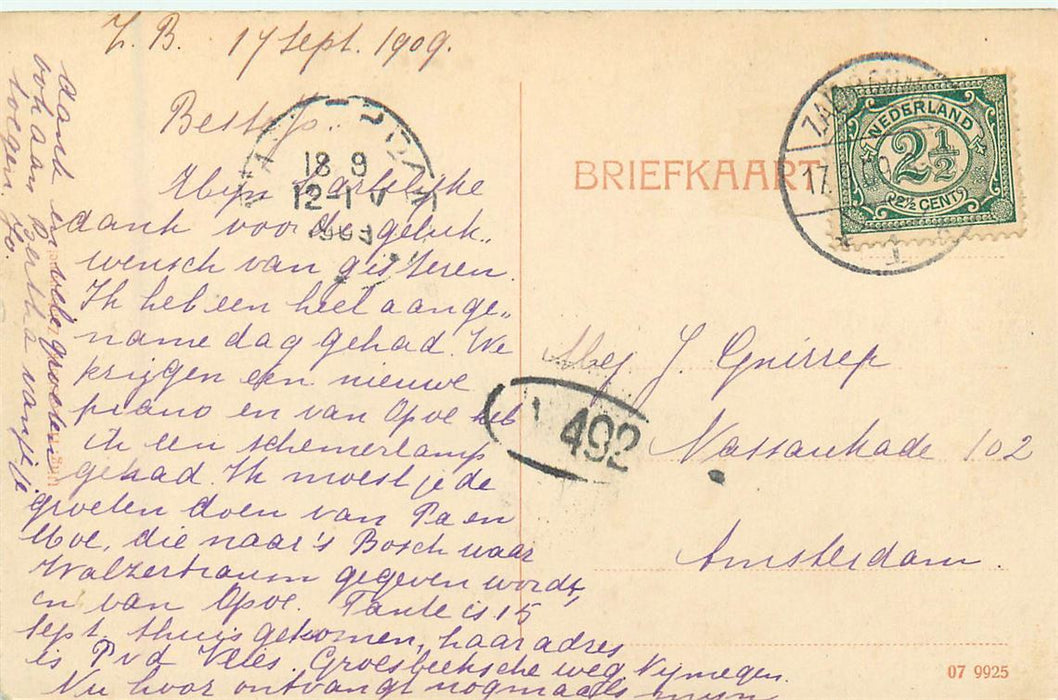 Z. B. 17 Sept. 1909.
Beste J.,
Mijn hartelijke
dank voor de geluk„
wensch van gisteren.
Ik heb een heel aange„
name dag gehad. We
krijgen een nieuwe
piano en van Opoe heb
ik een schemerlamp
gehad. Ik moest je de
groeten doen van Pa en
Moe, die naar 's Bosch waar
Walzertraum gegeven wordt,
en van Opoe. Tante is 15
Sept. thuis gekomen, haar adres
is P v d Groesbeeksche weg Nijmegen.
Nu hoor ontvangt nogmaals mijn
dank en vele groeten
ook aan Bertha van je
Jo.
BRIEFKAART
NEDERLAND
2½
(2½ CENT)
17
18 9
12-1 V
492
Mej J. Gnirrep
Nassaukade 102
Amsterdam.
07 9925